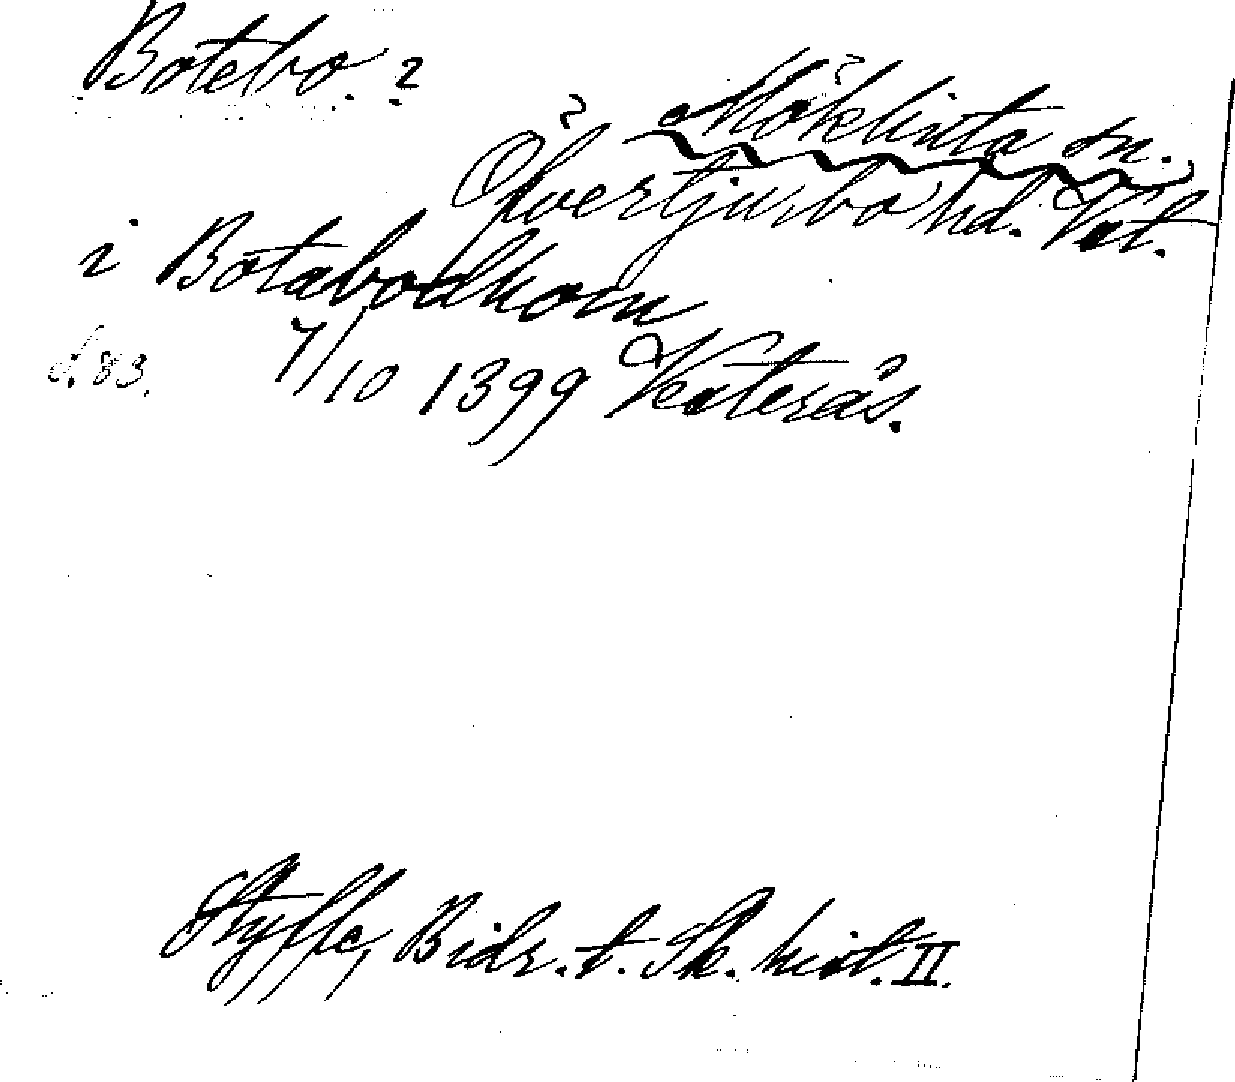 Botebo. ?
? Möklinta sn.
? Övertjurbo hd. Vstl.
i Botabodhom
d. 83. 7/10 1399 Västerås.
Styffe, Bidr. t. Sk. hist. II.